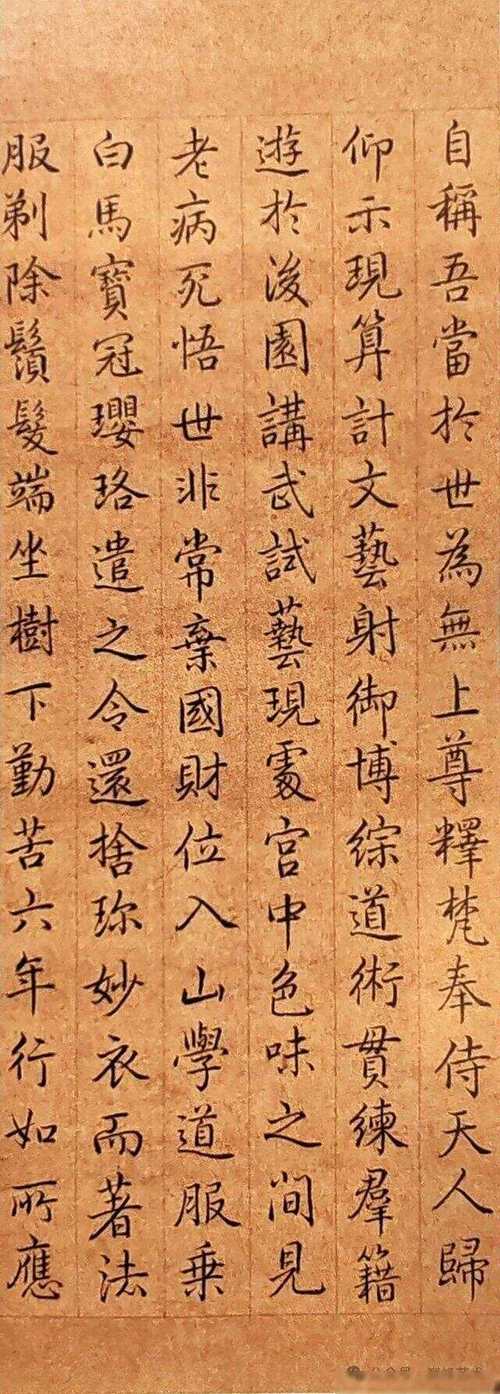 自稱吾當於世為無上尊釋梵奉侍天人歸
仰示現算計文藝射御博綜道術貫練羣籍
遊於後園講武試藝現處宮中色味之間見
老病死悟世非常棄國財位入山學道服乗
白馬寶冠瓔珞遣之令還捨珎妙衣而著法
服剃除鬚髮端坐樹下勤苦六年行如所應